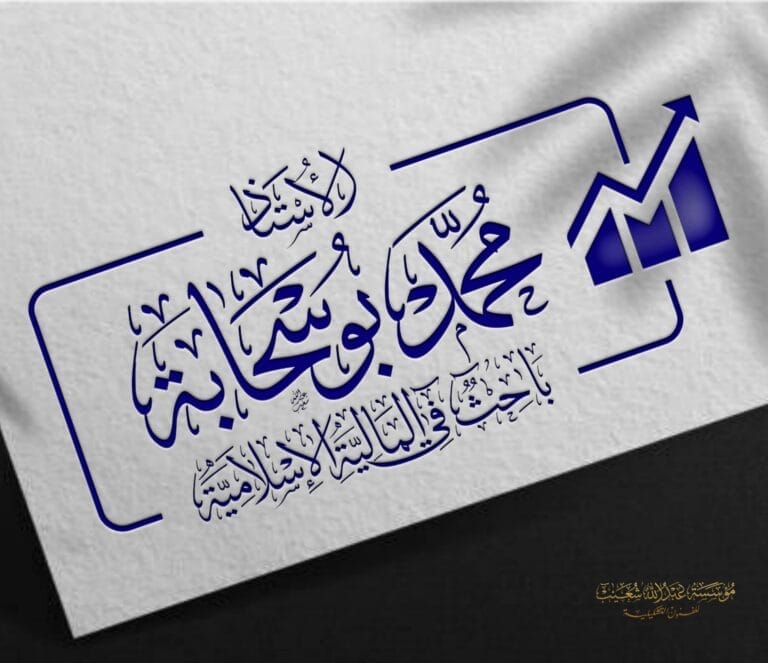 الأُسْتَاذ
مُحَمَّد بُوسَحَابَة
بَاحِثٌ فِي المَالِيَّةِ الإِسْلَامِيَّةِ
مُؤَسَّسَة عَبْدُ اللّٰه شُعَيْب
للفنون التشكيلية